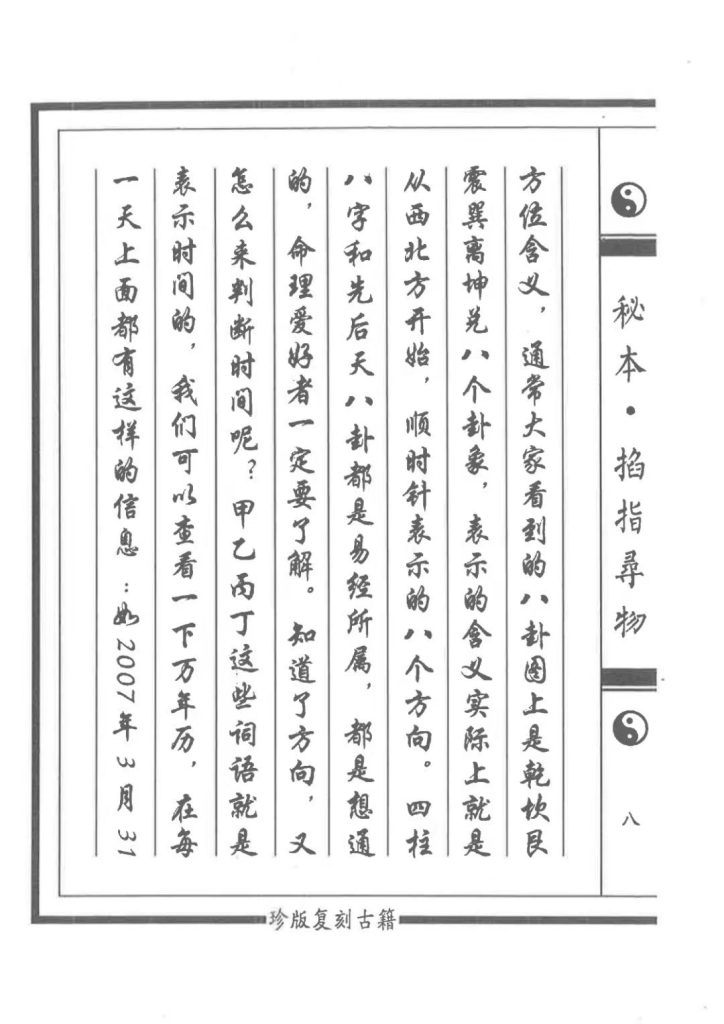 秘本·掐指寻物
八
方位含义，通常大家看到的八卦图上是乾坎艮
震巽离坤兑八个卦象，表示的含义实际上就是
从西北方开始，顺时针表示的八个方向。四柱
八字和先后天八卦都是易经所属，都是想通
的，命理爱好者一定要了解。知道了方向，又
怎么来判断时间呢？甲乙丙丁这些词语就是
表示时间的，我们可以查看一下万年历，在每
一天上面都有这样的信息：如2007年3月31
珍版复刻古籍